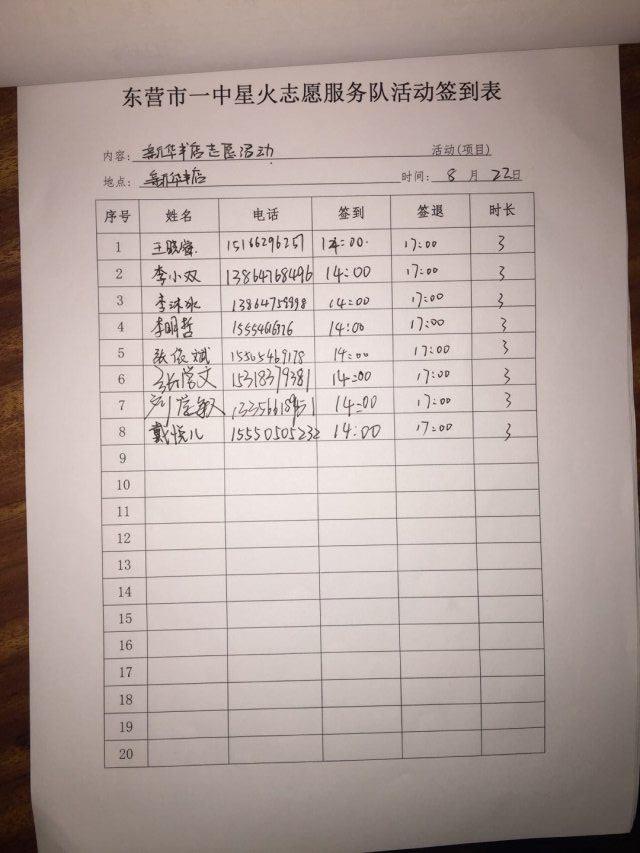 东营市一中星火志愿服务队活动签到表
内容：新华书店志愿活动 活动(项目)
地点：新华书店 时间：8月22日
序号 姓名 电话 签到 签退 时长
1 王晓 15166296257 14:00 17:00 3
2 李小双 13864768496 14:00 17:00 3
3 李沐冰 13864758998 14:00 17:00 3
4 李明哲 14:00 17:00 3
5 张依斌 15505469178 14:00 17:00 3
6 张学文 15318379381 14:00 17:00 3
7 14:00 17:00 3
8 戴悦儿 15550505232 14:00 17:00 3
9
10
11
12
13
14
15
16
17
18
19
20